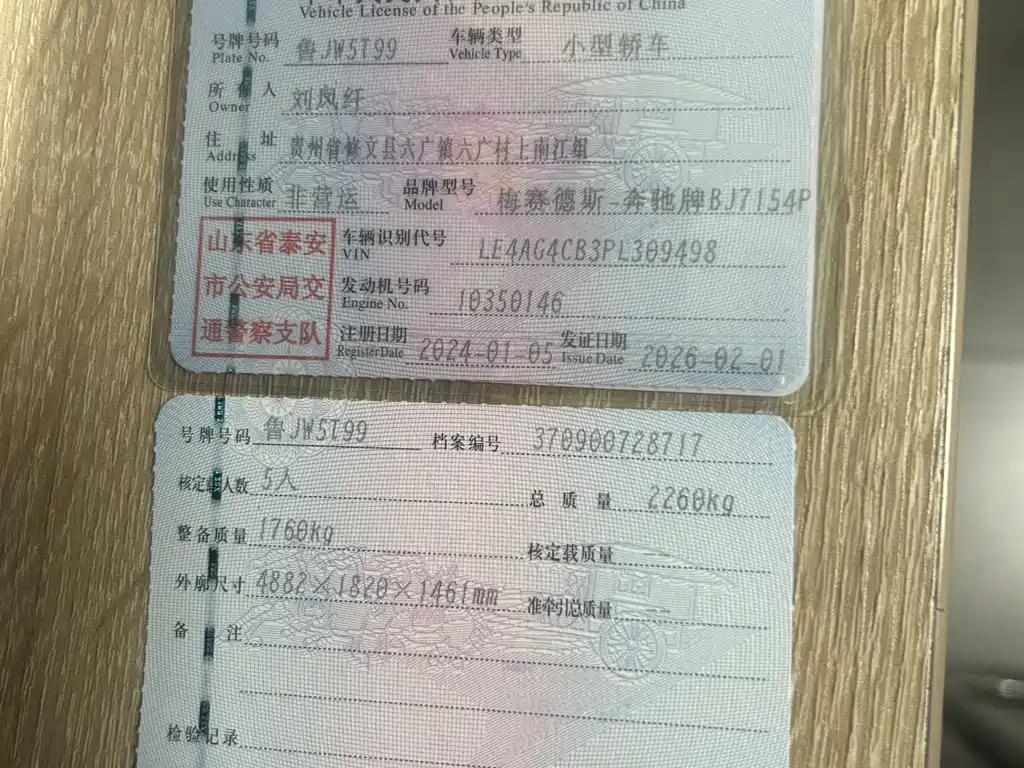 Vehicle License of the People's Republic of China
号牌号码 鲁JW5T99 车辆类型 小型轿车
Plate No. Vehicle Type
所有人 刘凤纤
Owner
住址 贵州省修文县六广镇六广村上南江组
Address
使用性质 非营运 品牌型号 梅赛德斯-奔驰牌BJ7154P
Use Character Model
山东省泰安 车辆识别代号 LE4AG4CB3PL309498
VIN
市公安局交 发动机号码 10350146
Engine No.
通警察支队 注册日期 2024-01-05 发证日期 2026-02-01
Register Date Issue Date
号牌号码 鲁JW5T99 档案编号 370900728717
核定载人数 5人 总质量 2260kg
整备质量 1760kg 核定载质量 --
外廓尺寸 4882×1820×1461mm 准牵引总质量 --
备注
检验记录